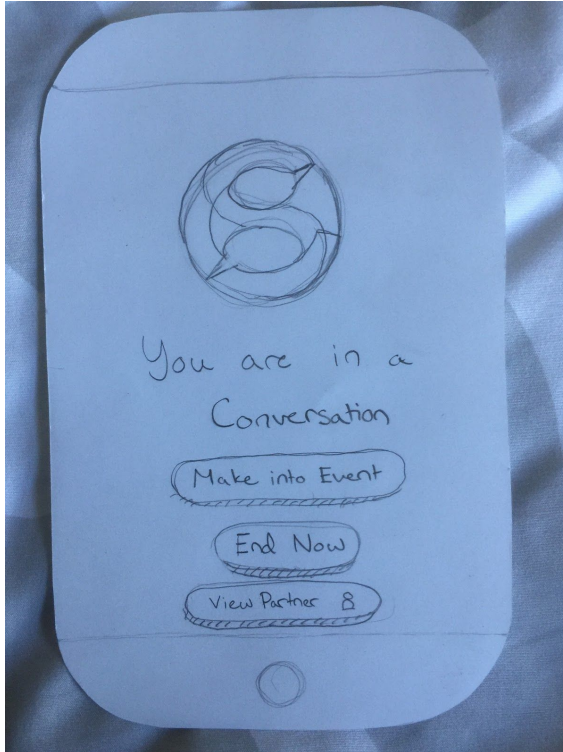 You are in a
Conversation
Make into Event
End Now
View Partner